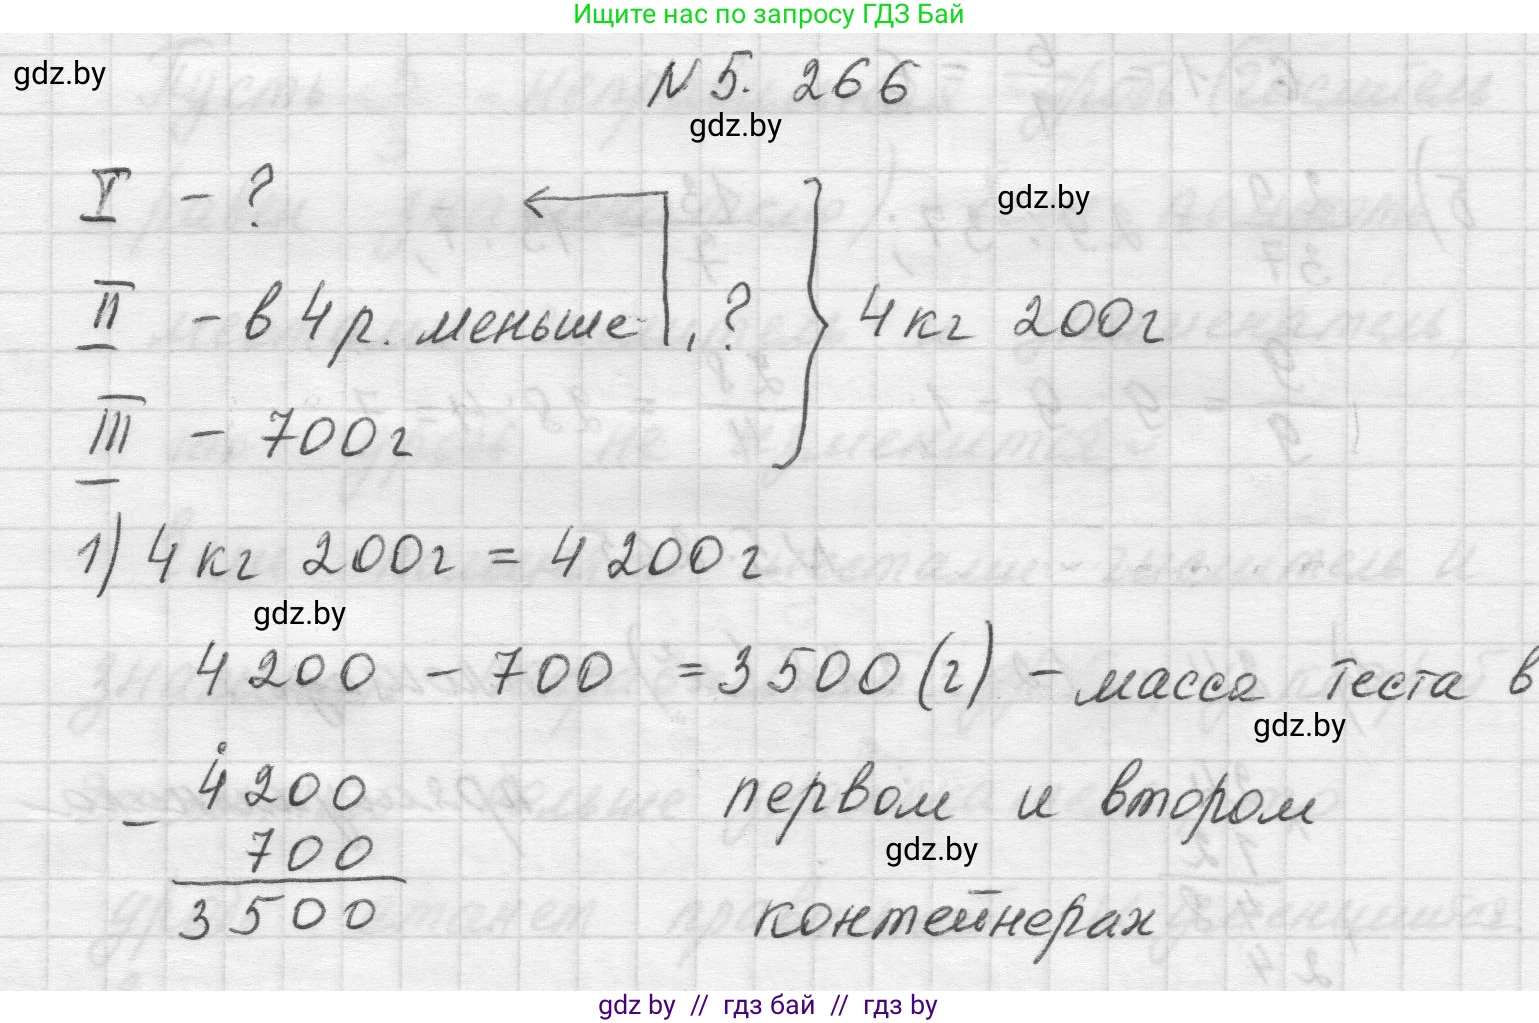 Ищите нас по запросу ГДЗ Бай
gdz.by
N 5. 266
gdz.by
I - ?
gdz.by
II - в 4 р. меньше, ?
4 кг 200г
III - 700г
1) 4 кг 200г = 4 200г
gdz.by
4 200 - 700 = 3 500 (г) - масса теста в
gdz.by
4200
- 700
3500
первом и втором
gdz.by
контейнерах
gdz by // гдз бай // гдз by